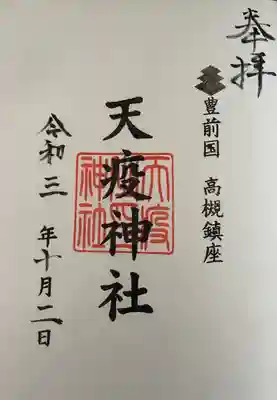 奉拝
豊前国 高槻鎮座
天疫神社
天疫神社
令和三年十月二日